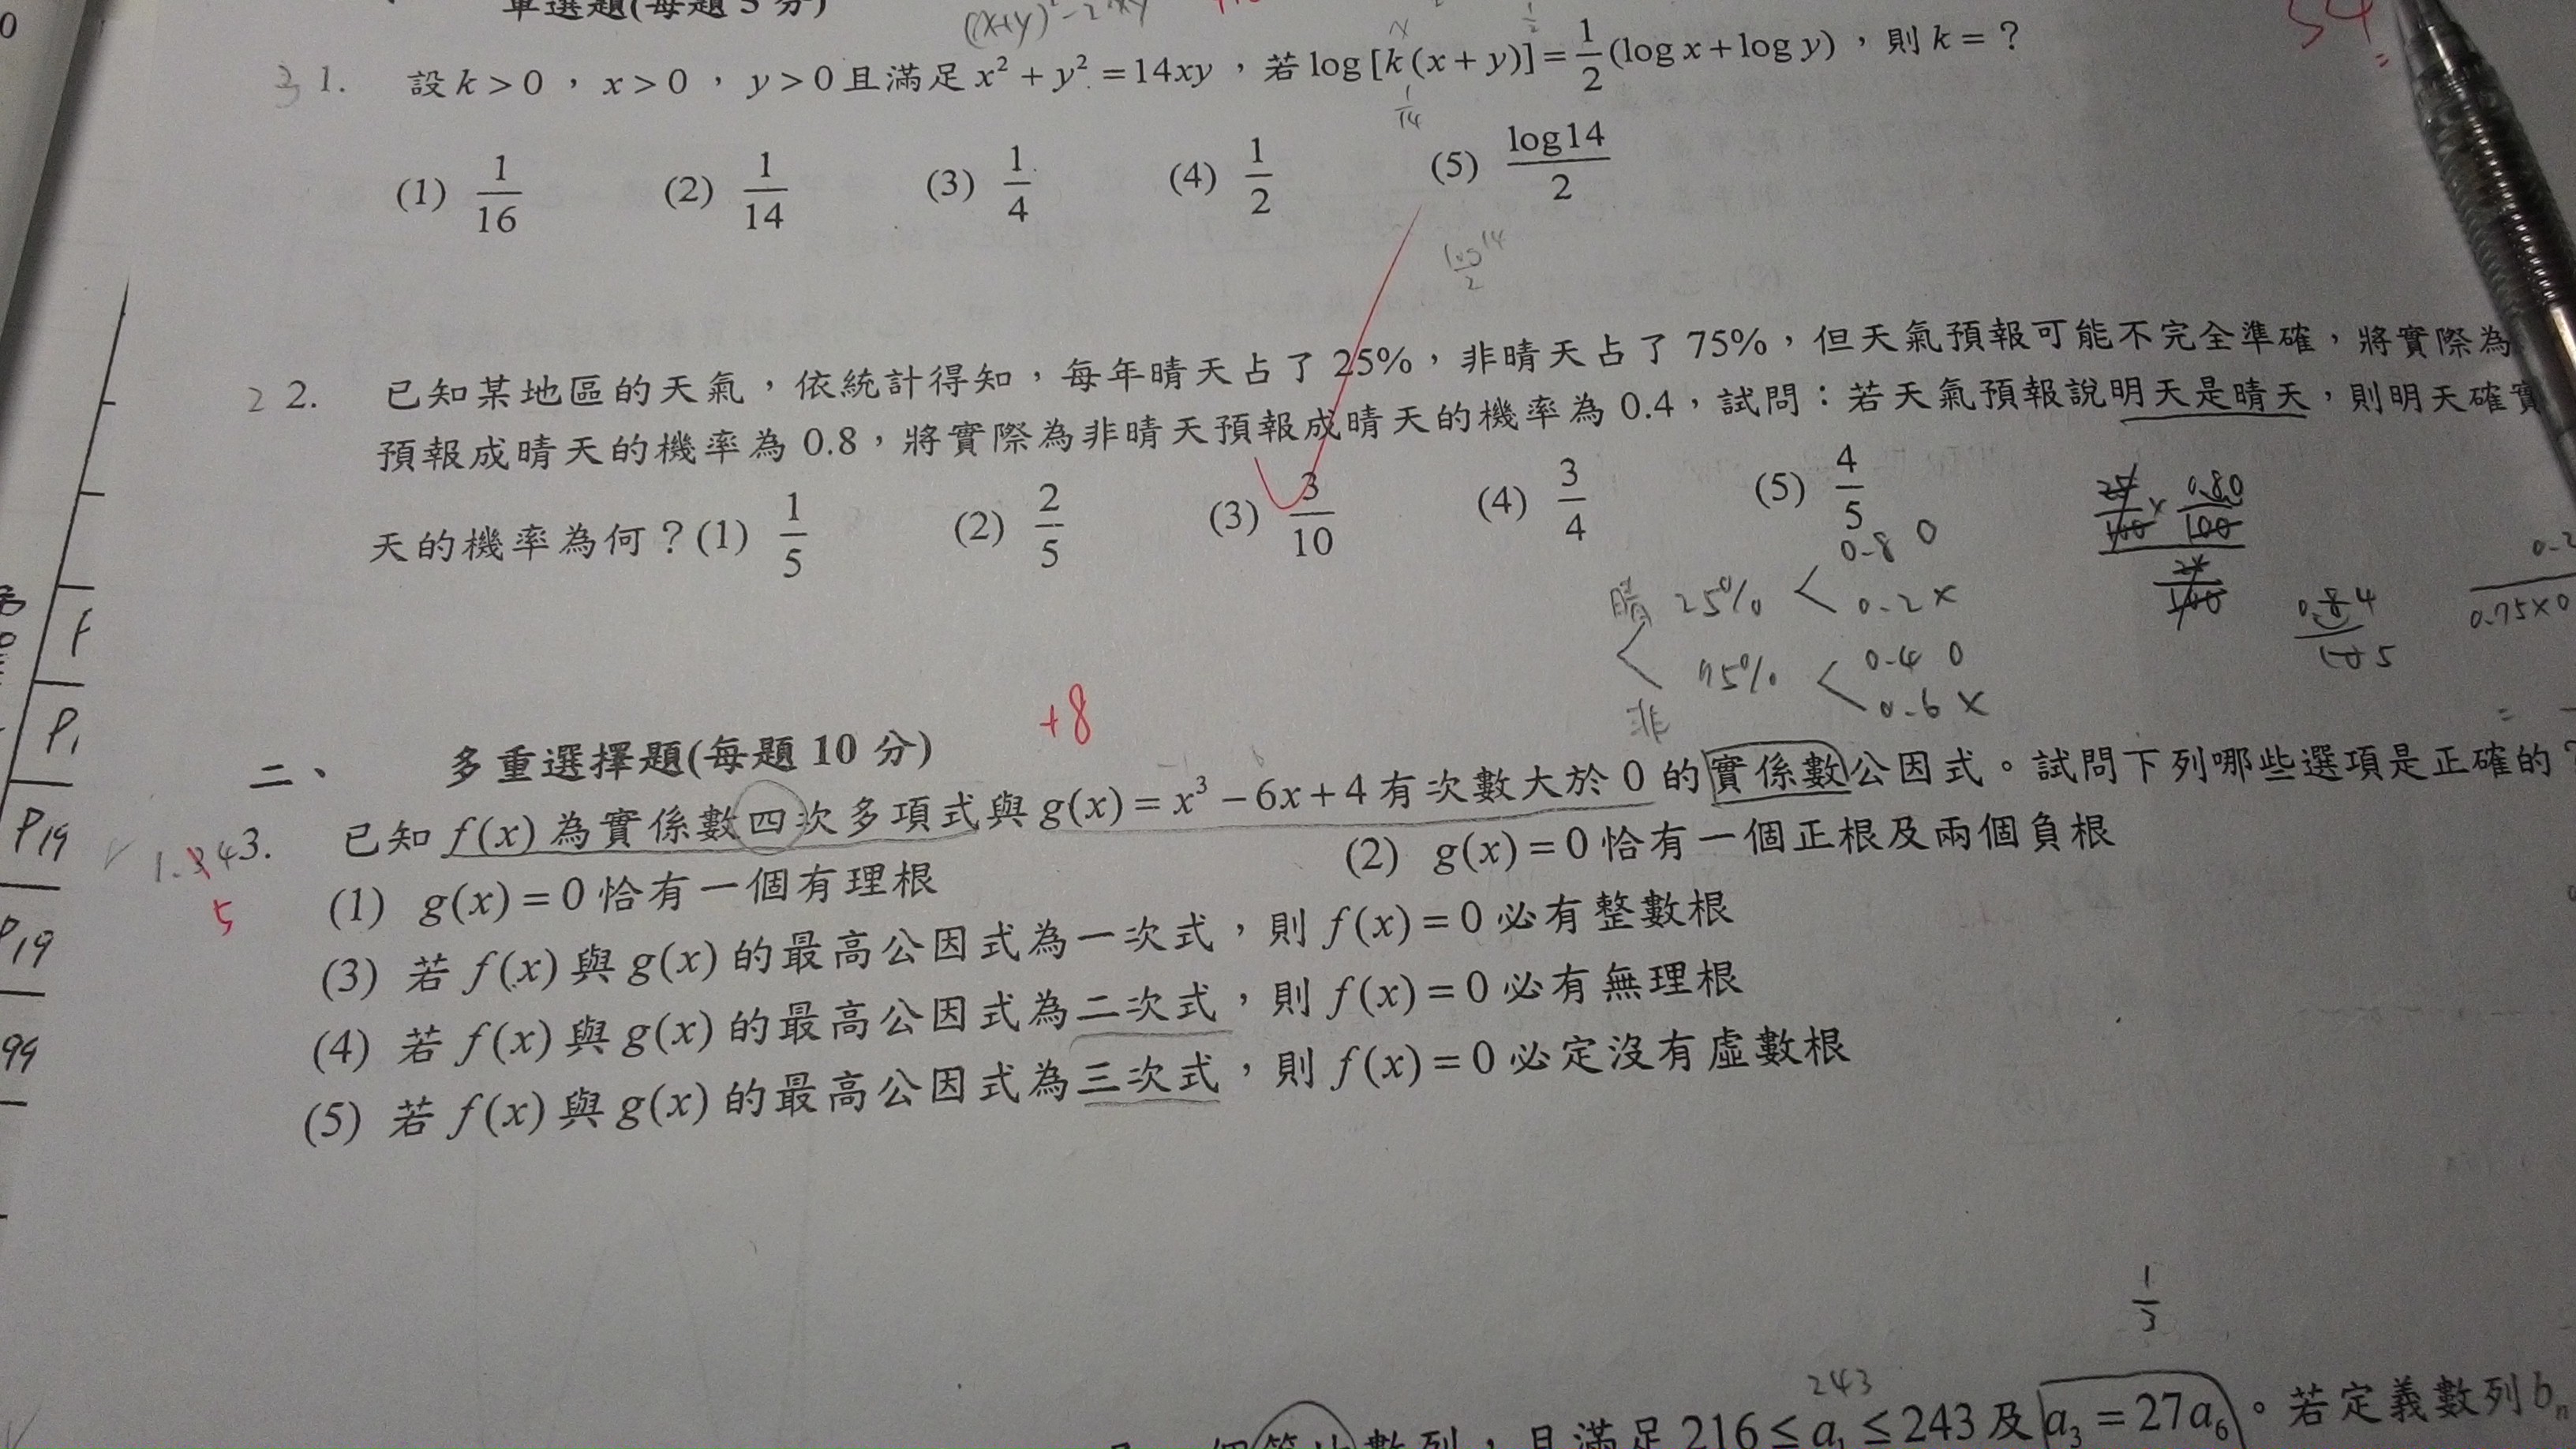 單選題(每題 5 分)
(x+y)²-2xy
3 1. 設 k > 0 , x > 0 , y > 0 且滿足 x² + y² = 14xy ,若 log [k(x + y)] = 1/2 (log x + log y) ,則 k = ?
1/14
(1) 1/16 (2) 1/14 (3) 1/4 (4) 1/2 (5) log14/2
log14/2
2 2. 已知某地區的天氣,依統計得知,每年晴天占了 25%,非晴天占了 75%,但天氣預報可能不完全準確,將實際為
預報成晴天的機率為 0.8,將實際為非晴天預報成晴天的機率為 0.4,試問:若天氣預報說明天是晴天,則明天確實
天的機率為何?(1) 1/5 (2) 2/5 (3) 3/10 (4) 3/4 (5) 4/5
晴 25% < 0.8 0
0.2 x
非 75% < 0.4 0
0.6 x
0.75×0
+8
二、 多重選擇題(每題 10 分)
3. 已知 f(x) 為實係數四次多項式與 g(x) = x³ − 6x + 4 有次數大於 0 的實係數公因式。試問下列哪些選項是正確的?
5
(1) g(x) = 0 恰有一個有理根 (2) g(x) = 0 恰有一個正根及兩個負根
(3) 若 f(x) 與 g(x) 的最高公因式為一次式,則 f(x) = 0 必有整數根
(4) 若 f(x) 與 g(x) 的最高公因式為二次式,則 f(x) = 0 必有無理根
(5) 若 f(x) 與 g(x) 的最高公因式為三次式,則 f(x) = 0 必定沒有虛數根
P1
P19
P19
99
1/3
243
數列,且滿足 216 ≤ a₁ ≤ 243 及 a₃ = 27a₆。若定義數列 bₙ